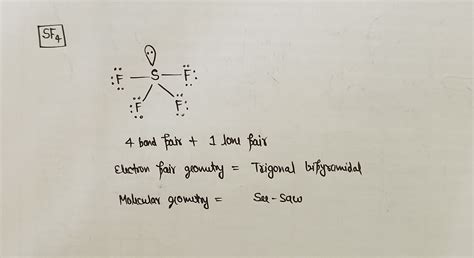 SF4
F S F
F F
4 bond pair + 1 lone pair
Electron pair geometry = Trigonal bipyramidal
Molecular geometry = See-Saw